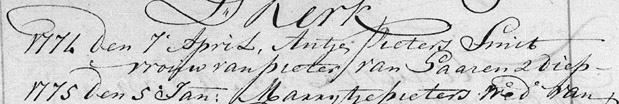 Kerk
1774 den 7 April, Antje Pieters Smit
vrouw van pieter van Saaren 2 diep
1775 den 5 Jan: Marrytje pieters wed van